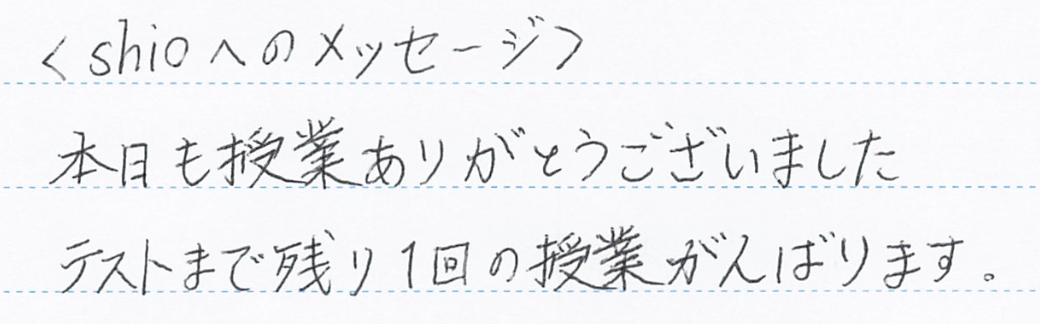 <shioへのメッセージ>
本日も授業ありがとうございました
テストまで残り1回の授業がんばります。